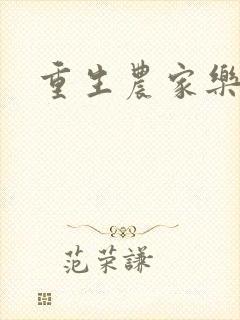 重生農家樂
范荣謙